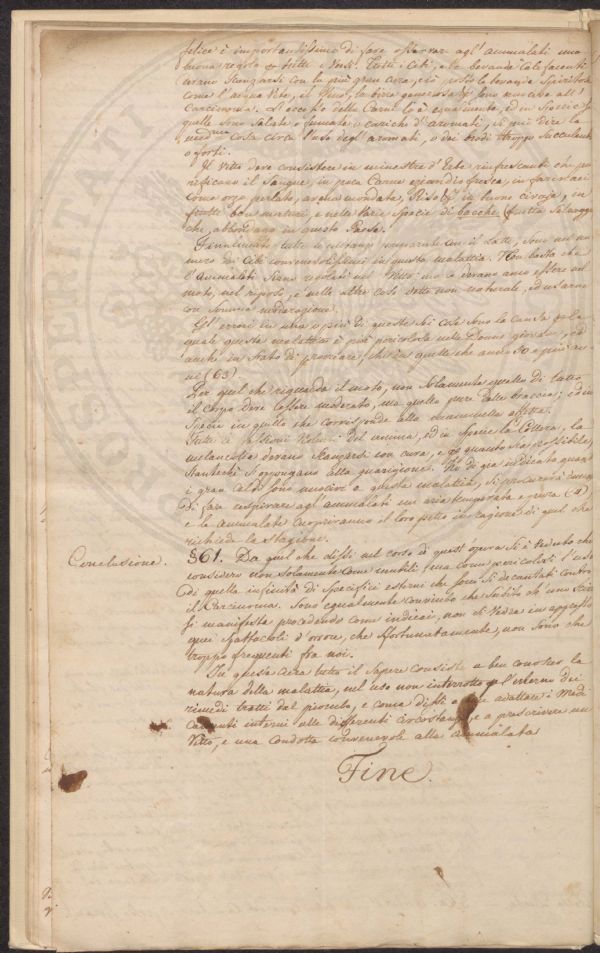 felice è importantissimo di fare osservare agl' ammalati una
buona regola Tutti i Cibi, e le bevande Calefacenti
devano Scansarsi con la più gran cura, così sono le bevande Spiritose
come l'acqua Vite, il Vino, la birra generosa Sono nocive all'
Carcinoma. L'eccesso della Carne lo è egualmente, ed in Specie
quelle Sono Salate o fumate o cariche d'aromati, Si può dire la
med.ma cosa circa l'uso degl' aromati, o dei brodi troppo Succulenti
o forti.
Il Vitto deve consistere in minestre d'Erbe rinfrescanti che pu-
rificano il Sangue, in poca Carne fresca, in farinacei
come orzo perlato, avena mondata, Riso in buone ciraje, in
frutti ben maturi, e nelle Varie Specie di bacche (frutta Selvagge
che, abbondano in questo Paese.
Finalmente tutte le preparate con il Latte, Sono nel nu-
mero dei Cibi convenevoli in questa malattia. Non basta che
l'ammalati Siano regolati nel Vitto ma devano anco essere nel
moto, nel riposo, e nelle altre cose dette non naturale, ed usarne
con Somma moderazione.
Gl' errori in una o più di queste Sei cose Sono la causa la
quale questa malattia è più pericolosa nelle Donne giovani, ed
anche in stato di procreare, che in quelle che anno 50 e più an-
ni (63)
Per quel che riguarda il moto, non Solamente quello di tutto
il corpo deve essere moderato, ma quello pure delle braccia; ed in
Specie in quello che corrisponde alla mammella affetta.
Tutte le passioni Violenti del animo, ed in Specie la Collera, la
melancolia devano Scansarsi con cura, e quanto Sia possibile,
Stanteche S'oppongano alla guarigione. Ho di gia indicato quanto
i gran caldi Sono nocivi a questa malattia, Si procurerà dunque
di fare respirare agl' ammalati un aria temperata e pura (4)
e le ammalate cuopriranno il loro petto in ragione di quel che
richiede la Stagione.
Conclusione. §61. Da quel che dissi nel corso di quest' opera Si è veduto che
considero non Solamente come inutili ma come pericolosi l'uso
di quella infinità di Specifici esterni che Sono Si decantati contro
il Carcinoma. Sono egualmente convinto che Subito che uno Scirro
Si manifesta procedendo come indicai, non Si Vedrà in appresso
quei Spettacoli d'orrore, che Sfortunatamente, non Sono che
troppo frequenti fra noi.
In questa cura tutto il Sapere Consiste a ben conoscer la
natura della malattia, nel uso non interrotto per l'esterno dei
rimedi tratti dal piombo, e come dissi adattare i Medi-
camenti interni alle differenti circostanze e a prescrivere un
Vitto, e una Condotta convenevole alla ammalata
Fine.
PROSPERITATI